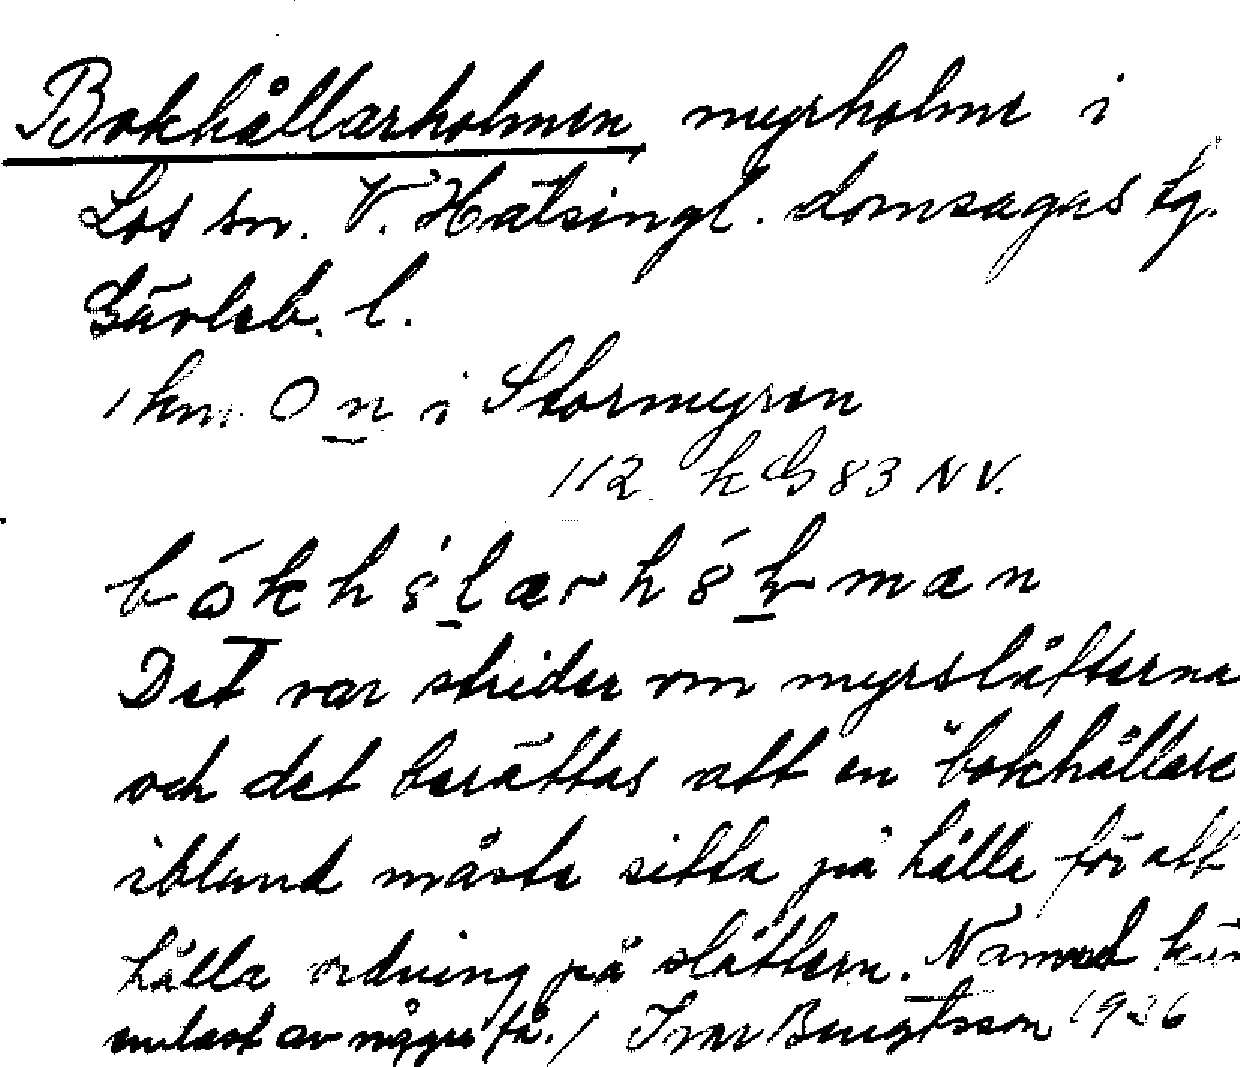 Bokhållarholmen, myrholme i
Los sn. V. Hälsingl. domsagas tg.
Gävleb. l.
1 km. O n i Stormyren
112 k G 83 NV.
Det var strider om myrslåtterna
och det berättas att en "bokhållare
ibland måste sitta på hålla för att
hålla ordning på slåttern. Namnet kän
endast av några få. / Ivar Bengtsson 1936